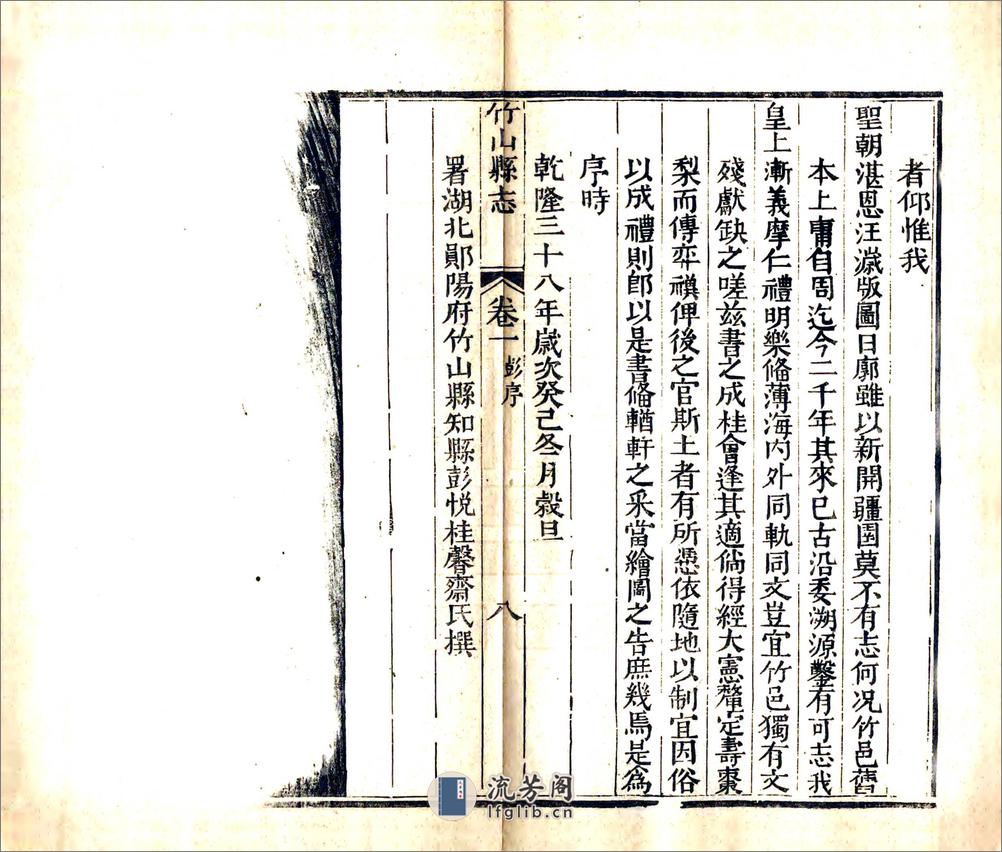 者仰惟我
聖朝湛恩汪濊版圖日廓雖以新開疆圉莫不有志何况竹邑舊
本上庸自周迄今二千年其來已古沿委溯源鑿有可志我
皇上漸義摩仁禮明樂俻薄海内外同軌同文豈宜竹邑獨有文
殘獻缺之嗟兹書之成桂會逢其適倘得經大憲釐定壽棗
梨而傳弈禩俾後之官斯土者有所憑依隨地以制宜因俗
以成禮則郎以是書俻輶軒之采當繪圖之告庶幾焉是為
序時
乾隆三十八年歲次癸己冬月榖旦
竹山縣志 卷一 彭序 八
署湖北鄖陽府竹山縣知縣彭悅桂馨齋氏撰
流芳阁
lfglib.cn